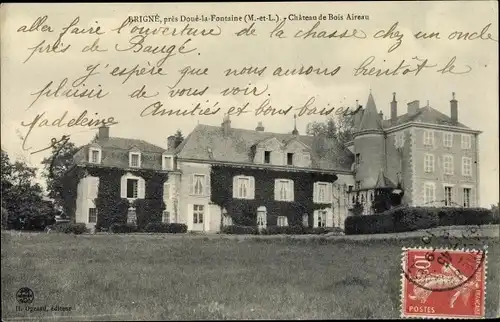 BRIGNÉ, près Doué-la-Fontaine (M.-et-L.) - Château de Bois Aireau
aller faire l'ouverture de la chasse chez un oncle
près de Baugé.
J'espère que nous aurons bientôt le
plaisir de vous voir.
Amitiés et bons baisers
Madeleine
H. éditeur
10
POSTES